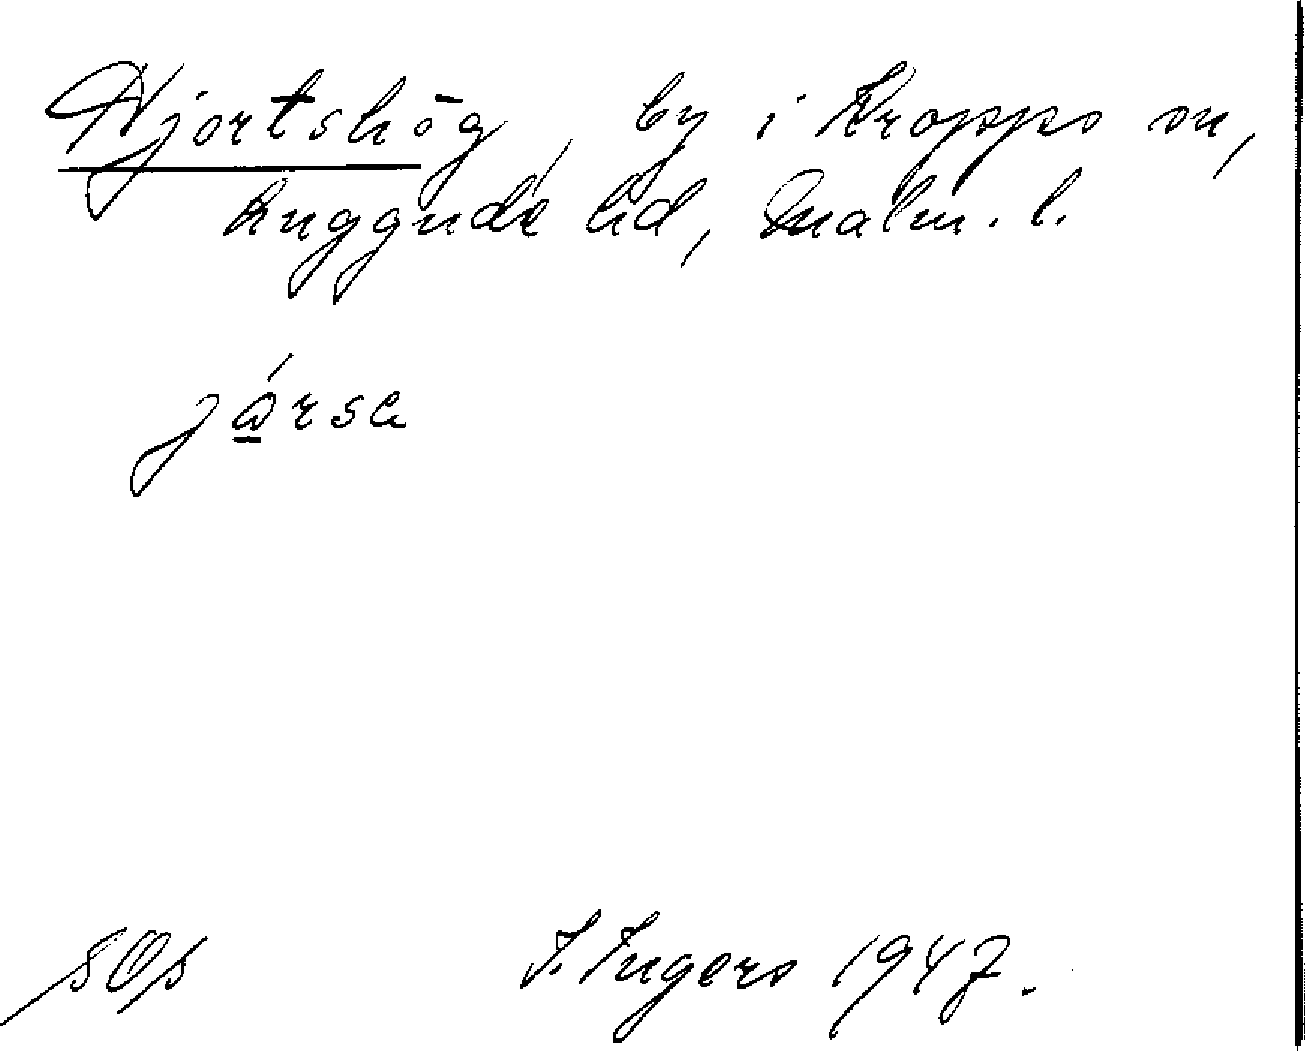 Hjortshög, by i Kropps sn,
Luggude hd, Malm. l.
jársa
I. Ingers 1947.